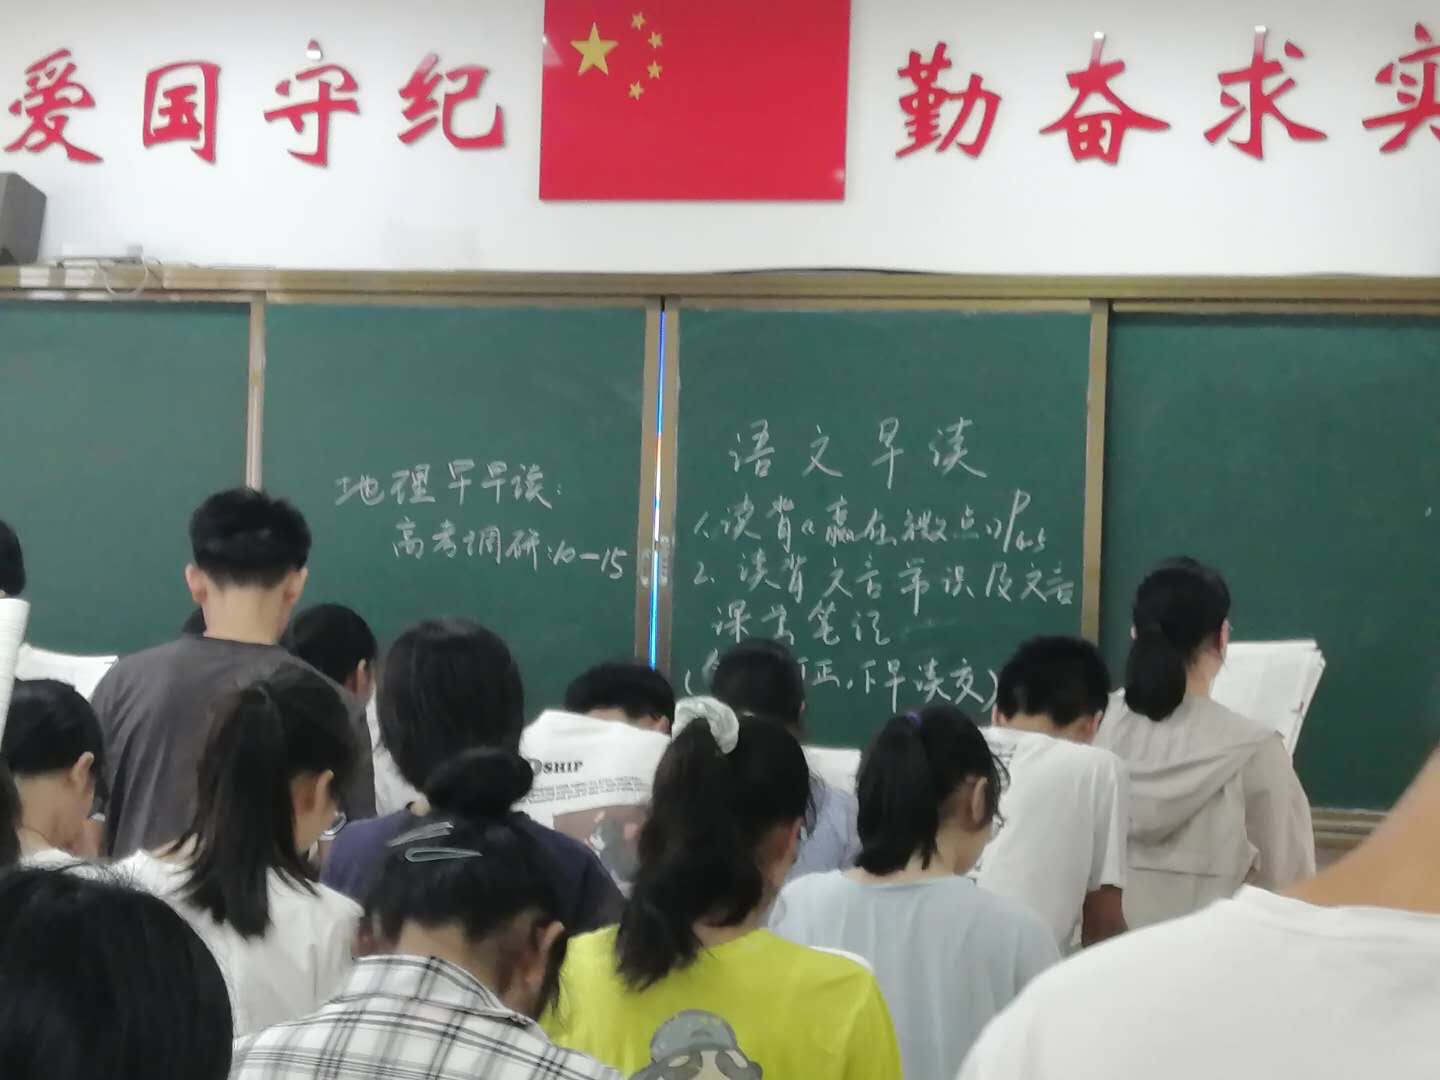 爱国守纪
勤奋求实
地理早早读:
高考调研:10-15
语文早读
1.读背《赢在微点》P
2.读背文言常识及文言
课堂笔记
正,下早读交)
SHIP